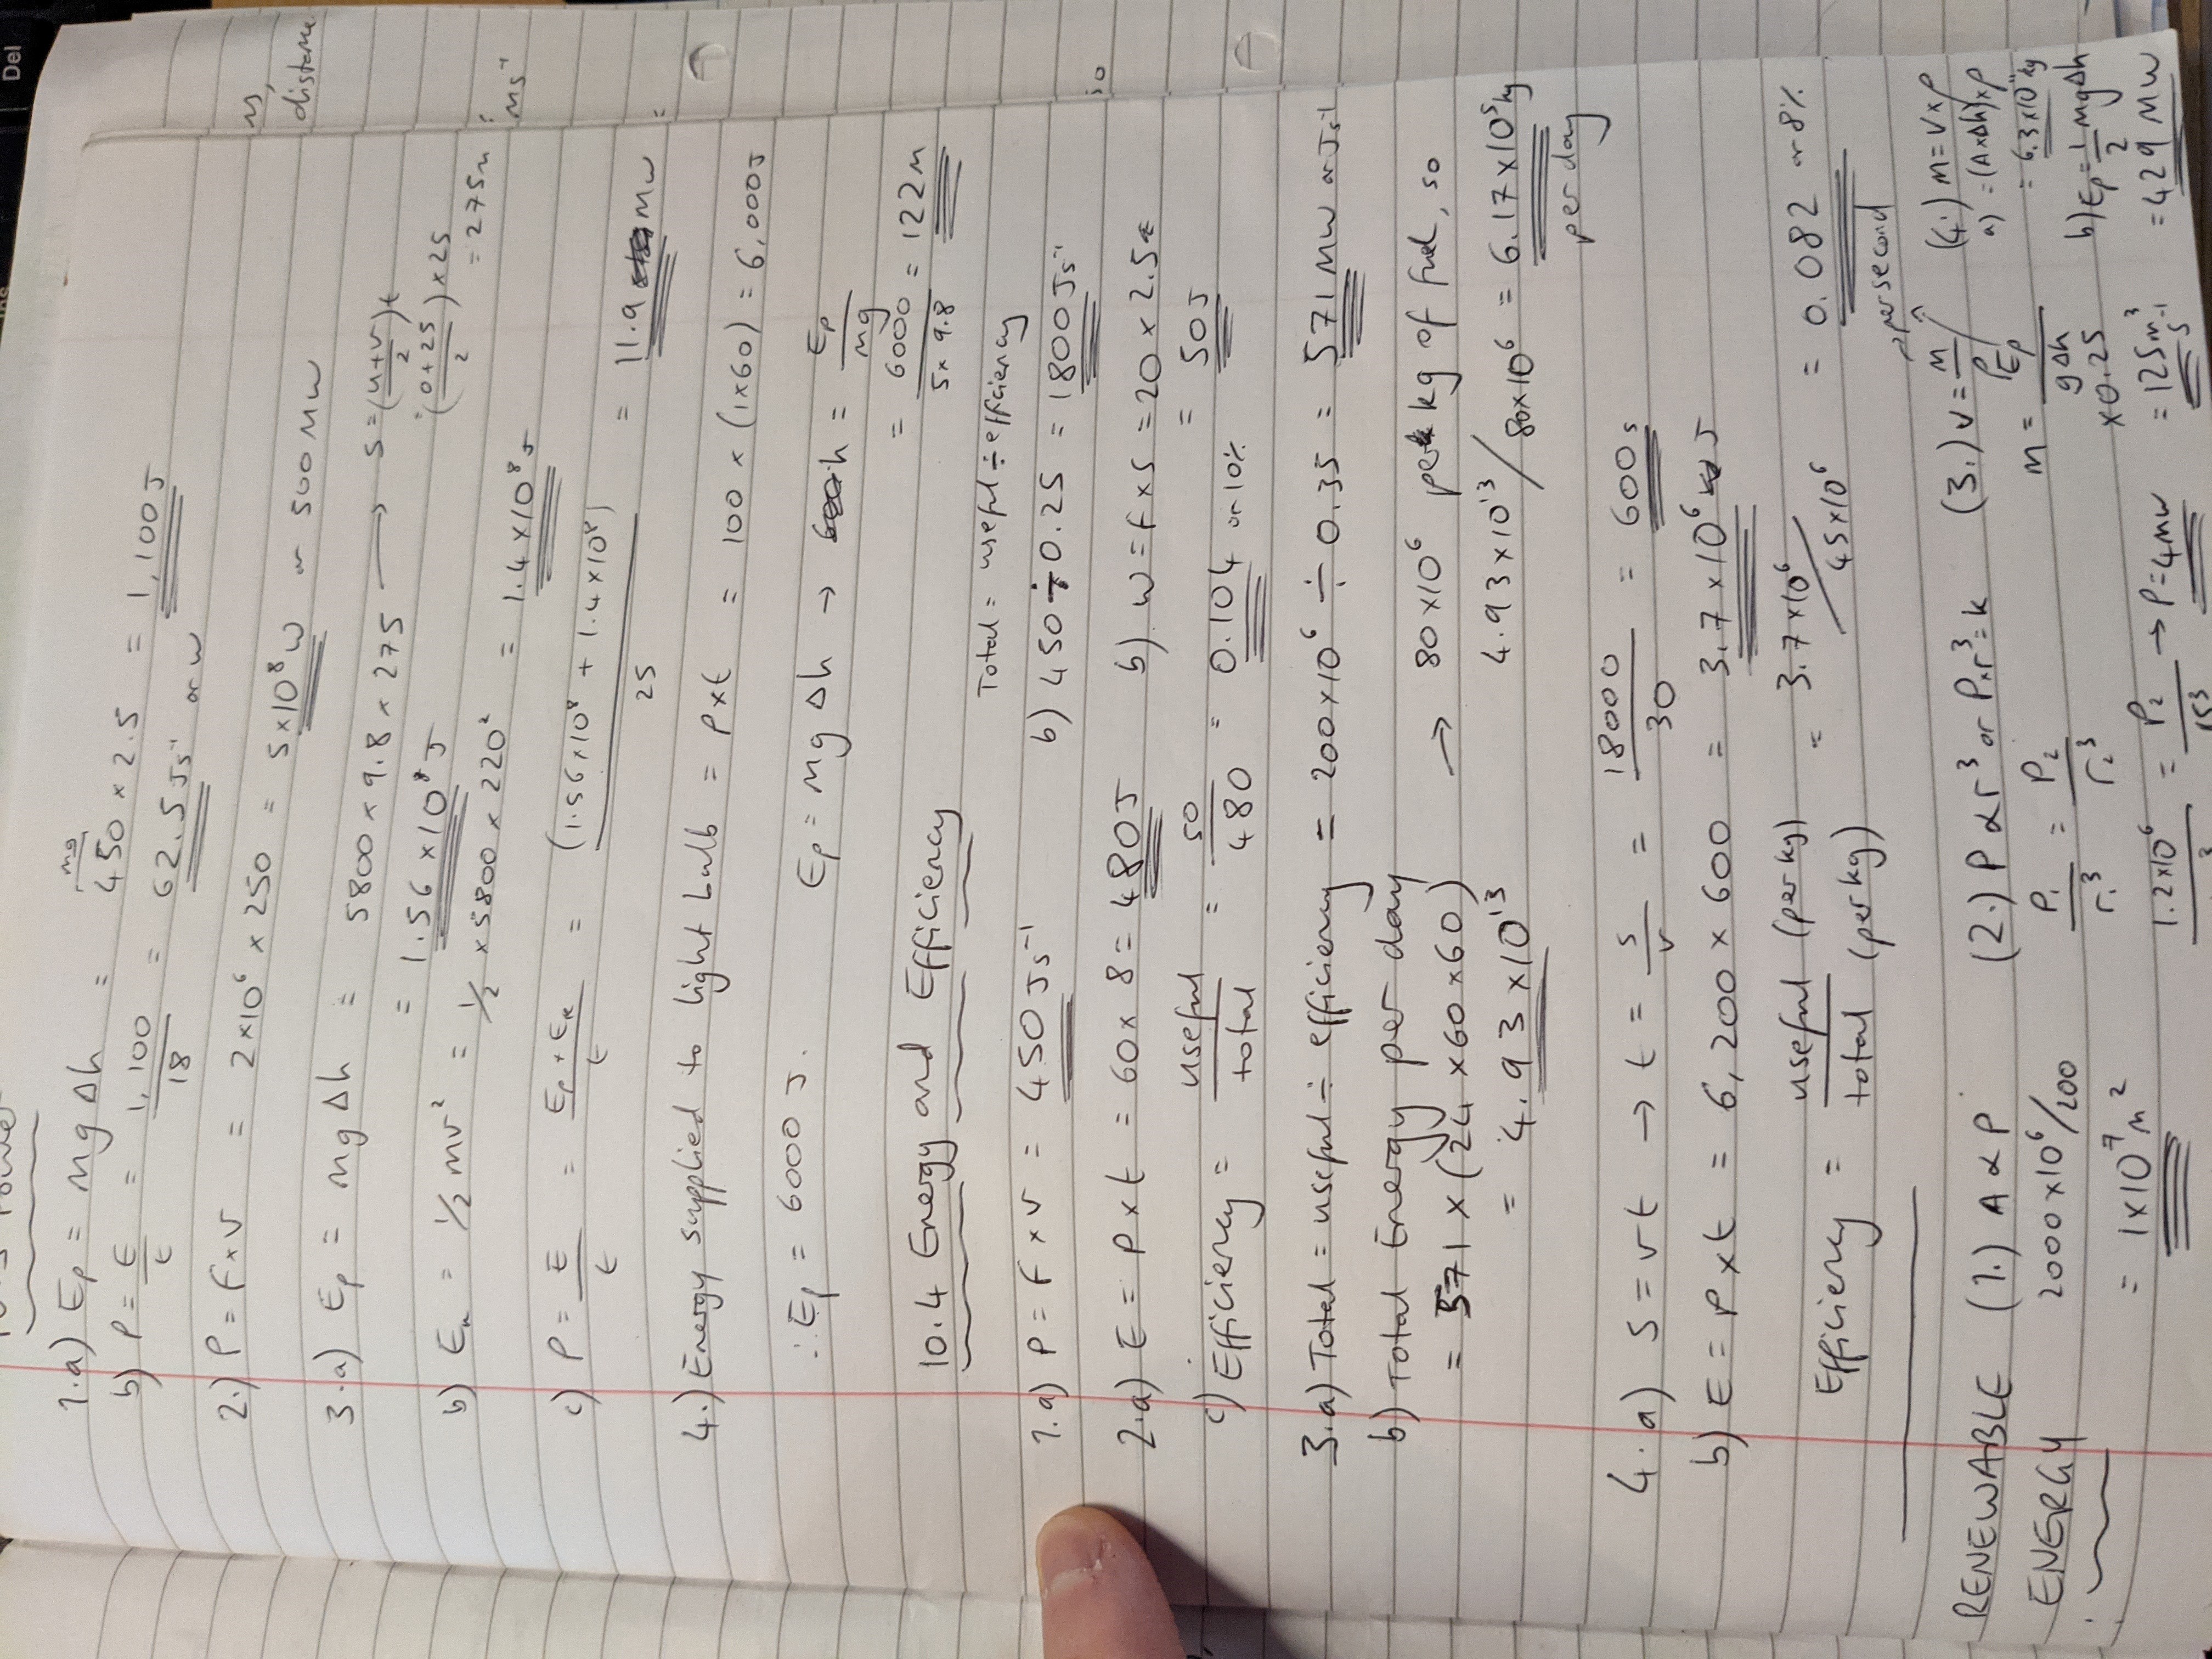 Del
m,
distance
ms⁻¹
so
1.a) Ep = mgΔh = 450 × 2.5 = 1,100J
mg
b) P = E/t = 1,100/18 = 62.5 Js⁻¹ or W
2.) P = F×v = 2×10⁶ × 250 = 5×10⁸W or 500MW
3.a) Ep = mgΔh = 5800 × 9.8 × 275 → s = ((u+v)/2)t
= 1.56 × 10⁸ J
= ((0+25)/2) × 25
= 275m
b) Ek = 1/2 mv² = 1/2 × 5800 × 220² = 1.4×10⁸J
c) P = E/t = (Ep + Ek)/t = (1.56×10⁸ + 1.4×10⁸)/25 = 11.9 MW
4.) Energy supplied to light bulb = P×t = 100 × (1×60) = 6,000J
∴ Ep = 6000 J. Ep = mgΔh → h = Ep/mg
= 6000/(5×9.8) = 122m
10.4 Energy and Efficiency
Total = useful ÷ efficiency
1.a) P = F×v = 450Js⁻¹ b) 450 ÷ 0.25 = 1800Js⁻¹
2.a) E = P×t = 60×8 = 480J b) W = F×s = 20 × 2.5
= 50J
c) Efficiency = useful/total = 50/480 = 0.104 or 10%
3.a) Total = useful ÷ efficiency = 200×10⁶ ÷ 0.35 = 571MW or Js⁻¹
b) Total Energy per day → 80×10⁶ per kg of fuel, so
= 571 × (24×60×60) 4.93×10¹³/80×10⁶ = 6.17×10⁵kg
= 4.93×10¹³ per day
4.a) s = vt → t = s/v = 18000/30 = 600s
b) E = P×t = 6,200 × 600 = 3.7×10⁶ J
Efficiency = useful (per kg)/total (per kg) = 3.7×10⁶/45×10⁶ = 0.082 or 8%
per second
RENEWABLE
ENERGY
(1.) A∝P
2000×10⁶/200
= 1×10⁷m²
(2.) P∝r³ or P×r³=k
P₁/r₁³ = P₂/r₂³
1.2×10⁶ = P₂/15³ → P=4MW
(3.) V = m/ρ
m = Ep/gΔh
×0.25
= 125m³s⁻¹
(4.) m=V×ρ
a) =(A×Δh)×ρ
= 6.3×10¹¹kg
b) Ep = 1/2 mgΔh
= 429MW